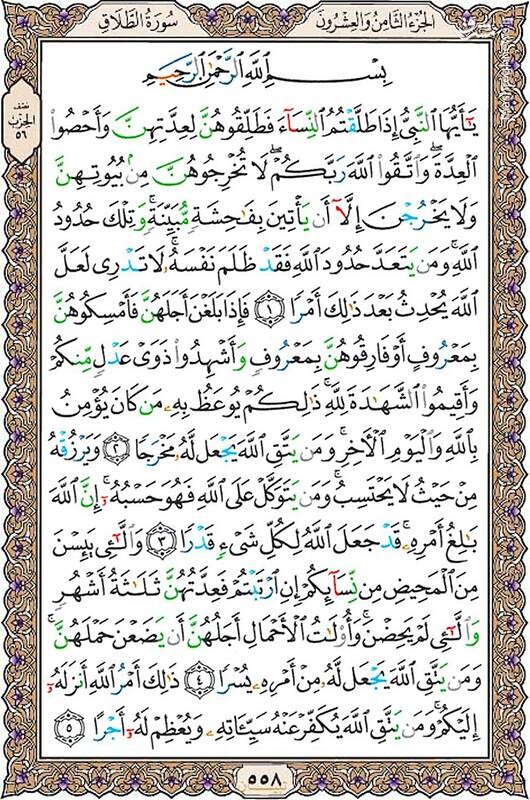 الجُزءُ الثَّامِنُ وَالعِشرُونَ
سُورَةُ الطَّلَاقِ
نصف
الحزب
٥٦
بِسْمِ ٱللَّهِ ٱلرَّحْمَٰنِ ٱلرَّحِيمِ
يَٰٓأَيُّهَا ٱلنَّبِىُّ إِذَا طَلَّقْتُمُ ٱلنِّسَآءَ فَطَلِّقُوهُنَّ لِعِدَّتِهِنَّ وَأَحْصُوا۟
ٱلْعِدَّةَ ۖ وَٱتَّقُوا۟ ٱللَّهَ رَبَّكُمْ ۖ لَا تُخْرِجُوهُنَّ مِنۢ بُيُوتِهِنَّ
وَلَا يَخْرُجْنَ إِلَّآ أَن يَأْتِينَ بِفَٰحِشَةٍ مُّبَيِّنَةٍ ۚ وَتِلْكَ حُدُودُ
ٱللَّهِ ۚ وَمَن يَتَعَدَّ حُدُودَ ٱللَّهِ فَقَدْ ظَلَمَ نَفْسَهُۥ ۚ لَا تَدْرِى لَعَلَّ
ٱللَّهَ يُحْدِثُ بَعْدَ ذَٰلِكَ أَمْرًا ١ فَإِذَا بَلَغْنَ أَجَلَهُنَّ فَأَمْسِكُوهُنَّ
بِمَعْرُوفٍ أَوْ فَارِقُوهُنَّ بِمَعْرُوفٍ وَأَشْهِدُوا۟ ذَوَىْ عَدْلٍ مِّنكُمْ
وَأَقِيمُوا۟ ٱلشَّهَٰدَةَ لِلَّهِ ۚ ذَٰلِكُمْ يُوعَظُ بِهِۦ مَن كَانَ يُؤْمِنُ
بِٱللَّهِ وَٱلْيَوْمِ ٱلْءَاخِرِ ۚ وَمَن يَتَّقِ ٱللَّهَ يَجْعَل لَّهُۥ مَخْرَجًا ٢ وَيَرْزُقْهُ
مِنْ حَيْثُ لَا يَحْتَسِبُ ۚ وَمَن يَتَوَكَّلْ عَلَى ٱللَّهِ فَهُوَ حَسْبُهُۥٓ ۚ إِنَّ ٱللَّهَ
بَٰلِغُ أَمْرِهِۦ ۚ قَدْ جَعَلَ ٱللَّهُ لِكُلِّ شَىْءٍ قَدْرًا ٣ وَٱلَّٰٓـِٔى يَئِسْنَ
مِنَ ٱلْمَحِيضِ مِن نِّسَآئِكُمْ إِنِ ٱرْتَبْتُمْ فَعِدَّتُهُنَّ ثَلَٰثَةُ أَشْهُرٍ
وَٱلَّٰٓـِٔى لَمْ يَحِضْنَ ۚ وَأُو۟لَٰتُ ٱلْأَحْمَالِ أَجَلُهُنَّ أَن يَضَعْنَ حَمْلَهُنَّ ۚ
وَمَن يَتَّقِ ٱللَّهَ يَجْعَل لَّهُۥ مِنْ أَمْرِهِۦ يُسْرًا ٤ ذَٰلِكَ أَمْرُ ٱللَّهِ أَنزَلَهُۥٓ
إِلَيْكُمْ ۚ وَمَن يَتَّقِ ٱللَّهَ يُكَفِّرْ عَنْهُ سَيِّـَٔاتِهِۦ وَيُعْظِمْ لَهُۥٓ أَجْرًا ٥
٥٥٨